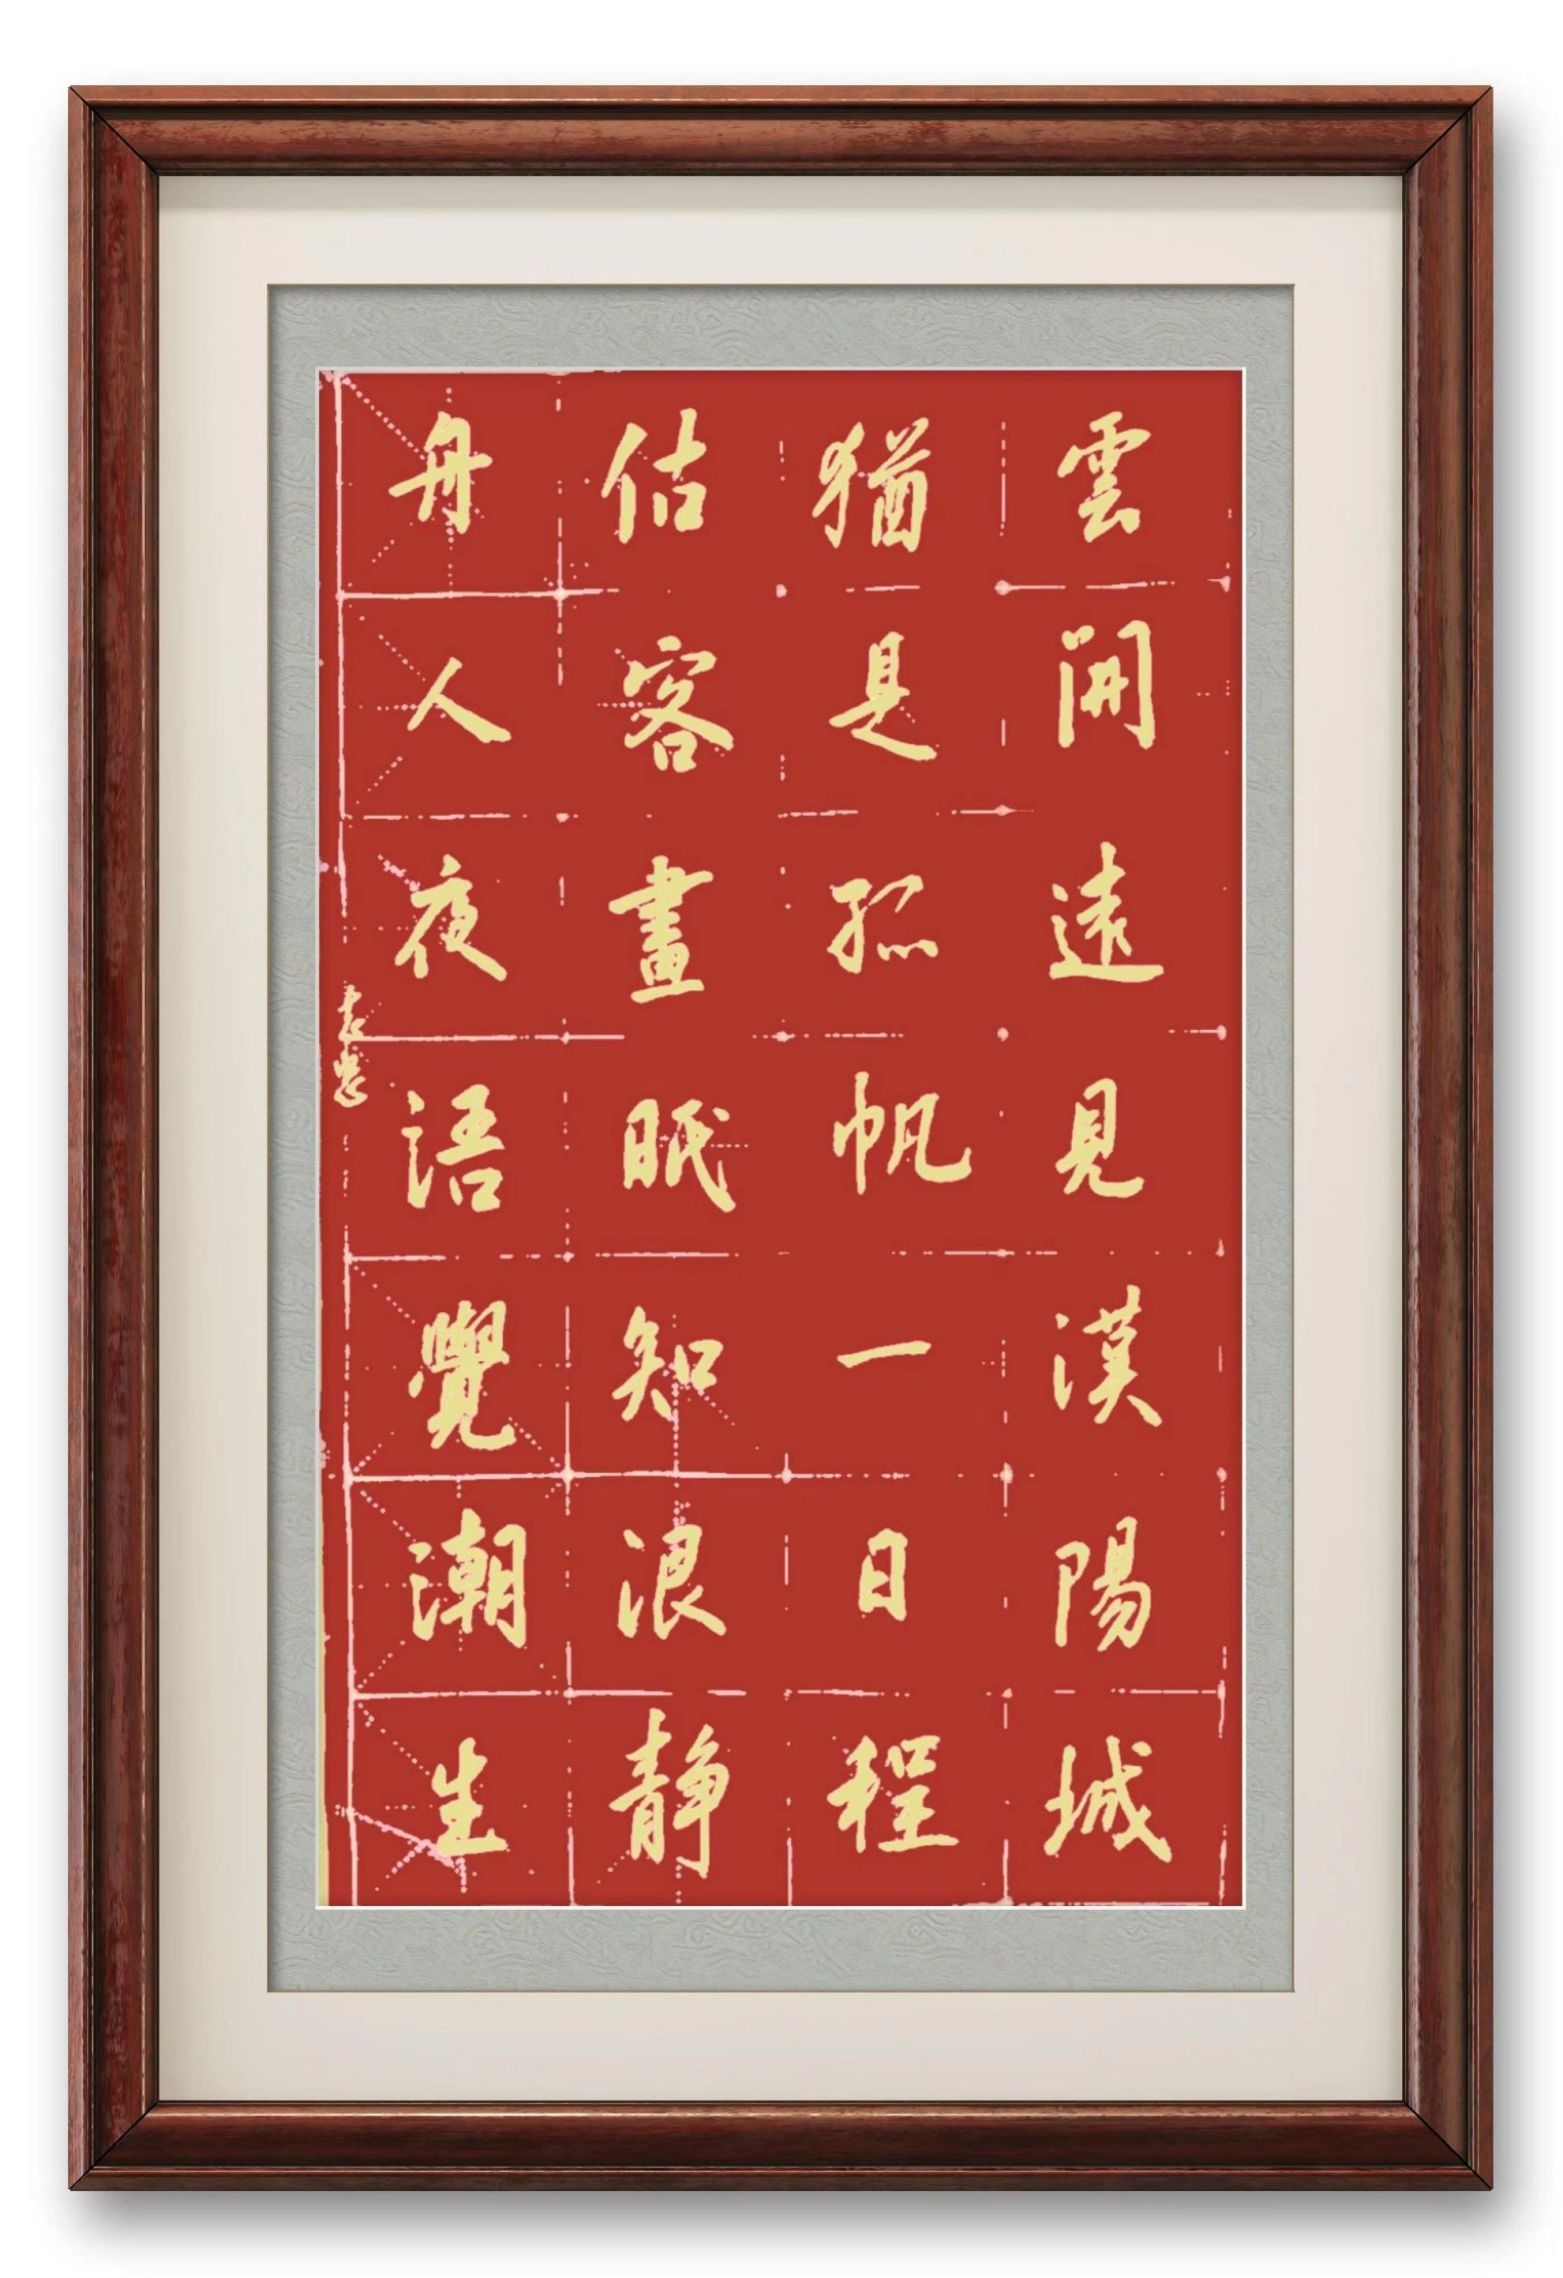 雲開遠見漢陽城
猶是孤帆一日程
估客晝眠知浪静
舟人夜語覺潮生